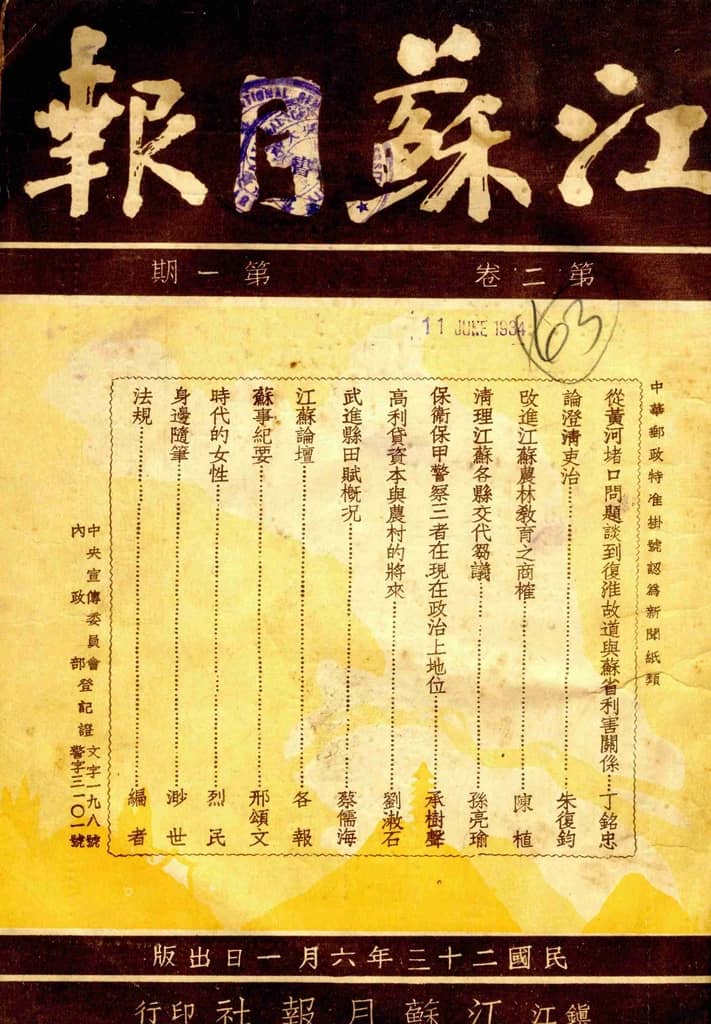 江蘇月報
第二卷 第一期
11 JUNE 1934
63
中華郵政特准掛號認爲新聞紙類
從黃河堵口問題談到復淮故道與蘇省利害關係……丁銘忠
論澄清吏治……朱復鈞
改進江蘇農林教育之商榷……陳植
清理江蘇各縣交代芻議……孫亮瑜
保衛保甲警察三者在現在政治上地位……承樹聲
高利貸資本與農村的將來……劉漱石
武進縣田賦概况……蔡儒海
江蘇論壇……各報
蘇事紀要……邢頌文
時代的女性……烈民
身邊隨筆……渺世
法規……編者
中央宣傳委員會登記證文字一九八號
內政部登記證警字三一〇一號
民國二十三年六月一日出版
鎮江江蘇月報社印行